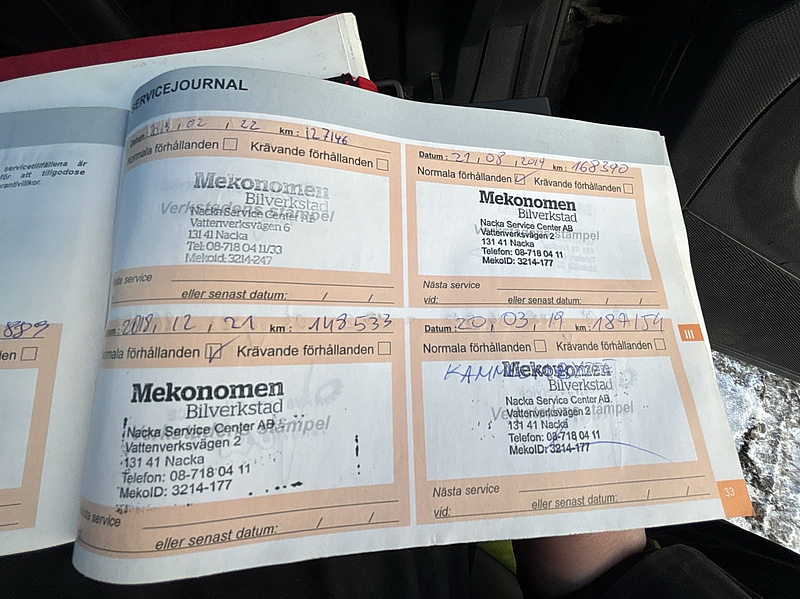 SERVICEJOURNAL
servicetillfällena är
för att tillgodose
rantivillkor.
889
en
Datum: 02 , 22 km: 127146
Normala förhållanden Krävande förhållanden
Verkstadens stämpel
Mekonomen
Bilverkstad
Nacka Service Center AB
Vattenverksvägen 6
131 41 Nacka
Tel: 08-718 04 11/33
MekoId: 3214-247
ästa service
eller senast datum: / /
Datum: 21, 08, 2019 km: 168390
Normala förhållanden Krävande förhållanden
Mekonomen
Bilverkstad
Nacka Service Center AB
Vattenverksvägen 2
131 41 Nacka
Telefon: 08-718 04 11
MekoID: 3214-177
Nästa service
vid: eller senast datum: / /
um: 2018, 12, 21 km: 148533
mala förhållanden Krävande förhållanden
Mekonomen
Bilverkstad
Nacka Service Center AB
Vattenverksvägen 2
131 41 Nacka
Telefon: 08-718 04 11
MekoID: 3214-177
ästa service
eller senast datum: / /
Datum: 20, 03, 19 km: 187154
Normala förhållanden Krävande förhållanden
Mekonomen
Bilverkstad
Nacka Service Center AB
Vattenverksvägen 2
131 41 Nacka
Telefon: 08-718 04 11
MekoID: 3214-177
Nästa service
vid: eller senast datum: / /
III
33